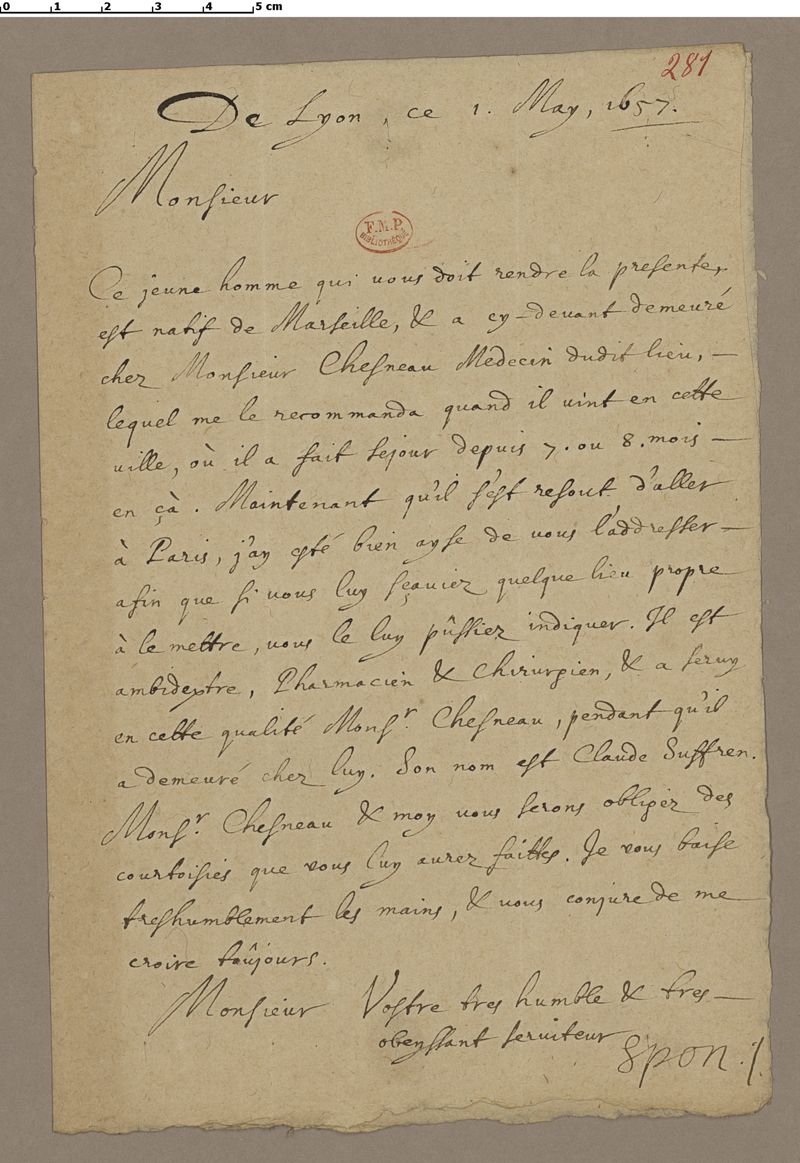 0 1 2 3 4 5 cm
281
De Lyon, ce 1. May, 1657.
Monsieur
F.M.P.
BIBLIOTHÈQUE
Ce jeune homme qui vous doit rendre la presente,
est natif de Marseille, & a cy-devant demeuré
chez Monsieur Chesneau Medecin dudit lieu, —
lequel me le recommanda quand il vint en cette
ville, où il a fait sejour depuis 7. ou 8. mois —
en çà. Maintenant qu'il s'est resout d'aller
à Paris, j'ay esté bien ayse de vous l'addresser —
afin que si vous luy sçaviez quelque lieu propre
à le mettre, vous le luy pûssiez indiquer. Il est
ambidextre, Pharmacien & Chirurgien, & a servy
en cette qualité Monsr. Chesneau, pendant qu'il
a demeuré chez luy. Son nom est Claude Suffren.
Monsr. Chesneau & moy vous serons obligez des
courtoisies que vous luy aurez faittes. Je vous baise
treshumblement les mains, & vous conjure de me
croire toûjours.
Monsieur Vostre tres humble & tres —
obeyssant serviteur
Spon.